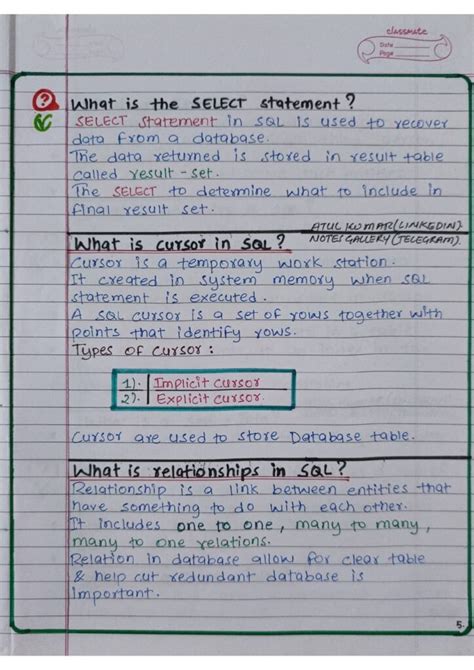 classmate
Date
Page
? What is the SELECT statement?
SELECT Statement in SQL is used to recover
data from a database.
The data returned is stored in result table
called result-set.
The SELECT to determine what to include in
final result set.
ATUL KUMAR(LINKEDIN)
NOTES GALLERY(TELEGRAM).
What is cursor in SQL?
Cursor is a temporary work station.
It created in system memory when SQL
statement is executed.
A SQL cursor is a set of rows together with
points that identify rows.
Types of cursor:
1). Implicit cursor
2). Explicit cursor.
Cursor are used to store Database table.
What is relationships in SQL?
Relationship is a link between entities that
have something to do with each other.
It includes one to one, many to many,
many to one relations.
Relation in database allow for clear table
& help cut redundant database is
Important.
5.